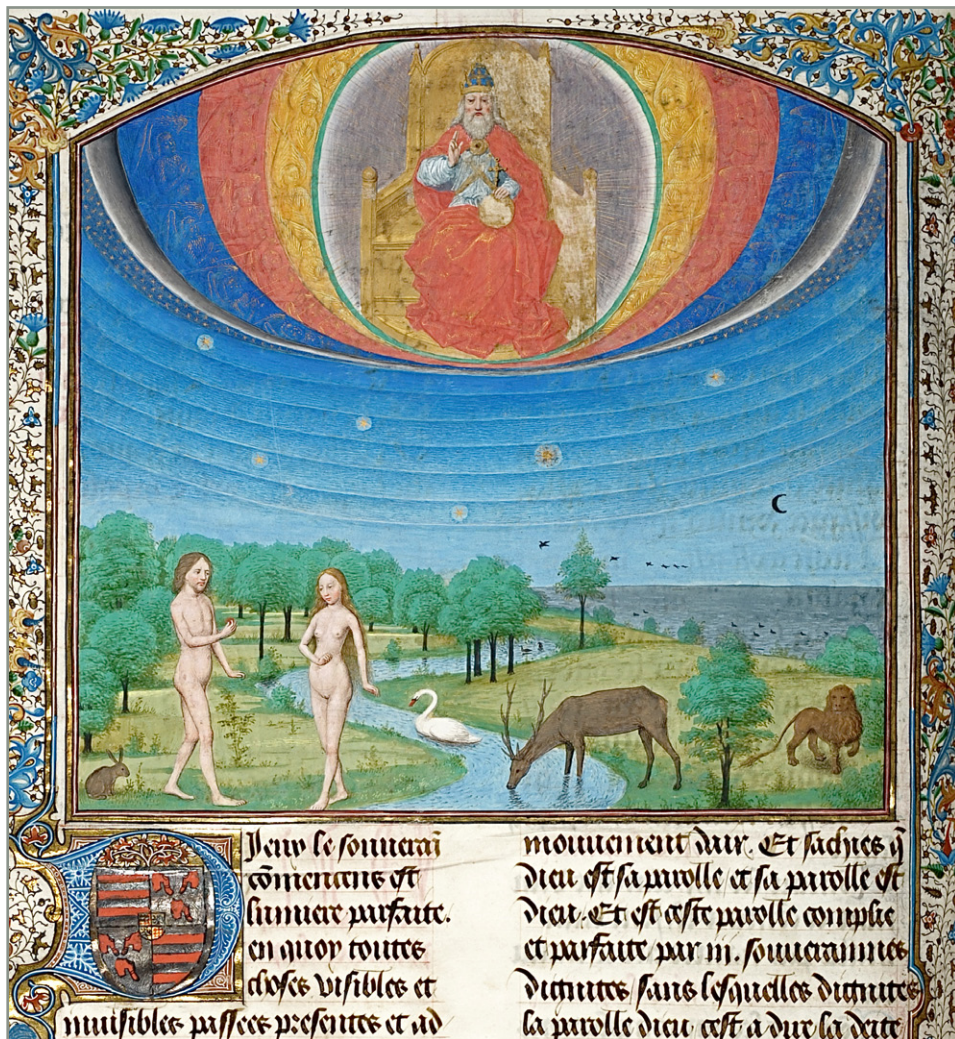 Dieux le souverai
cōmencens est
lumiere parfaite.
en quoy toutes
choses visibles et
invisibles passees presentes et ad
mouvement dair. Et sachies q̄
dieu est sa parolle et sa parolle est
dieu. Et est ceste parolle complie
et parfaite par iii. souverainnes
dignites sans lesquelles dignites
la parolle dieu cest a dire la deite